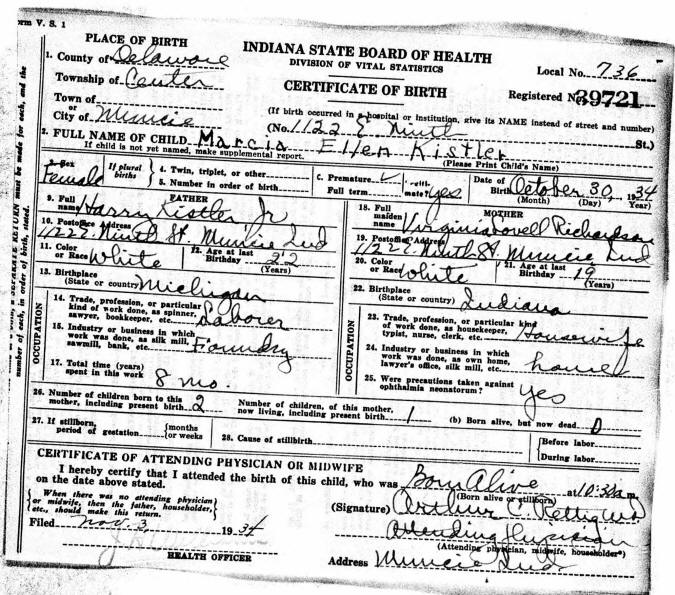 Form V. S. 1
PLACE OF BIRTH
INDIANA STATE BOARD OF HEALTH
DIVISION OF VITAL STATISTICS
1. County of Delaware
Local No. 736
Township of Center
CERTIFICATE OF BIRTH
Registered No. 39721
Town of
or
City of Muncie
(If birth occurred in a hospital or institution, give its NAME instead of street and number)
(No. 1122 E Ninth St.)
2. FULL NAME OF CHILD Marcia Ellen Kistler
If child is not yet named, make supplemental report. (Please Print Child's Name)
3. Sex Female
If plural births
4. Twin, triplet, or other
5. Number in order of birth
C. Premature
Full term
yes
Date of Birth October 30, 1934
(Month) (Day) Year)
FATHER
9. Full name Harry Kistler Jr
10. Postoffice Address
1122 E Ninth St. Muncie Ind
11. Color or Race White
12. Age at last Birthday 22 (Years)
13. Birthplace (State or country) Michigan
OCCUPATION
14. Trade, profession, or particular kind of work done, as spinner, sawyer, bookkeeper, etc. Laborer
15. Industry or business in which work was done, as silk mill, sawmill, bank, etc. Foundry
17. Total time (years) spent in this work 8 mo.
MOTHER
18. Full maiden name Virginia Lovell Richardson
19. Postoffice Address
1122 E. Ninth St. Muncie Ind
20. Color or Race White
21. Age at last Birthday 19 (Years)
22. Birthplace (State or country) Indiana
OCCUPATION
23. Trade, profession, or particular kind of work done, as housekeeper, typist, nurse, clerk, etc. Housewife
24. Industry or business in which work was done, as own home, lawyer's office, silk mill, etc. home
25. Were precautions taken against ophthalmia neonatorum? yes
26. Number of children born to this mother, including present birth 2
Number of children, of this mother, now living, including present birth 1
(b) Born alive, but now dead 0
27. If stillborn, period of gestation (months (or weeks
28. Cause of stillbirth
Before labor
During labor
CERTIFICATE OF ATTENDING PHYSICIAN OR MIDWIFE
I hereby certify that I attended the birth of this child, who was Born Alive at 10:30 a.m.
on the date above stated. (Born alive or stillborn)
When there was no attending physician or midwife, then the father, householder, etc., should make this return.
(Signature) Arthur C Rettig MD
Attending Physician
(Attending physician, midwife, householder*)
Filed Nov. 3, 1934
HEALTH OFFICER
Address Muncie Ind